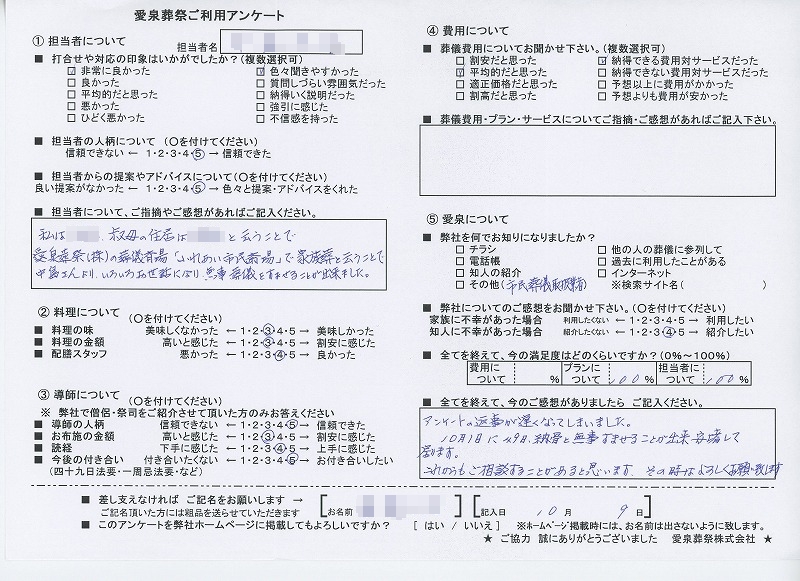 愛泉葬祭ご利用アンケート
① 担当者について
担当者名
■ 打合せや対応の印象はいかがでしたか？（複数選択可）
☑ 非常に良かった ☑ 色々聞きやすかった
□ 良かった □ 質問しづらい雰囲気だった
□ 平均的だと思った □ 納得いく説明だった
□ 悪かった □ 強引に感じた
□ ひどく悪かった □ 不信感を持った
■ 担当者の人柄について （〇を付けてください）
信頼できない ← 1・2・3・4・⑤ → 信頼できた
■ 担当者からの提案やアドバイスについて（〇を付けてください）
良い提案がなかった ← 1・2・3・4・⑤ → 色々と提案・アドバイスをくれた
■ 担当者について、ご指摘やご感想があればご記入ください。
私は 、叔母の住居は と云うことで
愛泉葬祭(株)の葬儀斎場「いれあい市民斎場」で家族葬と云うことで
中島さんより、いろいろお世話になり無事葬儀をすませることが出来ました。
② 料理について （〇を付けてください）
■ 料理の味 美味しくなかった ← 1・2・③・4・5 → 美味しかった
■ 料理の金額 高いと感じた ← 1・2・③・4・5 → 割安に感じた
■ 配膳スタッフ 悪かった ← 1・2・3・④・5 → 良かった
③ 導師について （〇を付けてください）
※ 弊社で僧侶・祭司をご紹介させて頂いた方のみお答えください
■ 導師の人柄 信頼できない ← 1・2・3・4・⑤ → 信頼できた
■ お布施の金額 高いと感じた ← 1・2・③・4・5 → 割安に感じた
■ 読経 下手に感じた ← 1・2・3・④・5 → 上手に感じた
■ 今後の付き合い 付き合いたくない ← 1・2・3・4・⑤ → お付き合いしたい
（四十九日法要・一周忌法要・など）
④ 費用について
■ 葬儀費用についてお聞かせ下さい。（複数選択可）
□ 割安だと思った ☑ 納得できる費用対サービスだった
☑ 平均的だと思った □ 納得できない費用対サービスだった
□ 適正価格だと思った □ 予想以上に費用がかかった
□ 割高だと思った □ 予想よりも費用が安かった
■ 葬儀費用・プラン・サービスについてご指摘・ご感想があればご記入下さい。
⑤ 愛泉について
■ 弊社を何でお知りになりましたか？
□ チラシ □ 他の人の葬儀に参列して
□ 電話帳 □ 過去に利用したことがある
□ 知人の紹介 □ インターネット
□ その他（市民葬儀取扱者） ※検索サイト名（ ）
■ 弊社についてのご感想をお聞かせ下さい。（〇を付けてください）
家族に不幸があった場合 利用したくない ← 1・2・3・4・5 → 利用したい
知人に不幸があった場合 紹介したくない ← 1・2・3・④・5 → 紹介したい
■ 全てを終えて、今の満足度はどのくらいですか？（0%～100%）
費用について % プランについて 100 % 担当者について 100 %
■ 全てを終えて、今のご感想がありましたら ご記入ください。
アンケートの返事が遅くなってしまいました。
10月1日に49日、納骨と無事すませることが出来安堵して
居ります。
これからもご相談することがあると思います。その時はよろしくお願い致します
■ 差し支えなければ ご記名をお願いします →
ご記名頂いた方には粗品を送らせていただきます
［お名前 ］ ［記入日 10 月 9 日］
■ このアンケートを弊社ホームページに掲載してもよろしいですか？ ［ はい / いいえ ］ ※ホームページ掲載時には、お名前は出さないように致します。
★ ご協力 誠にありがとうございました 愛泉葬祭株式会社 ★